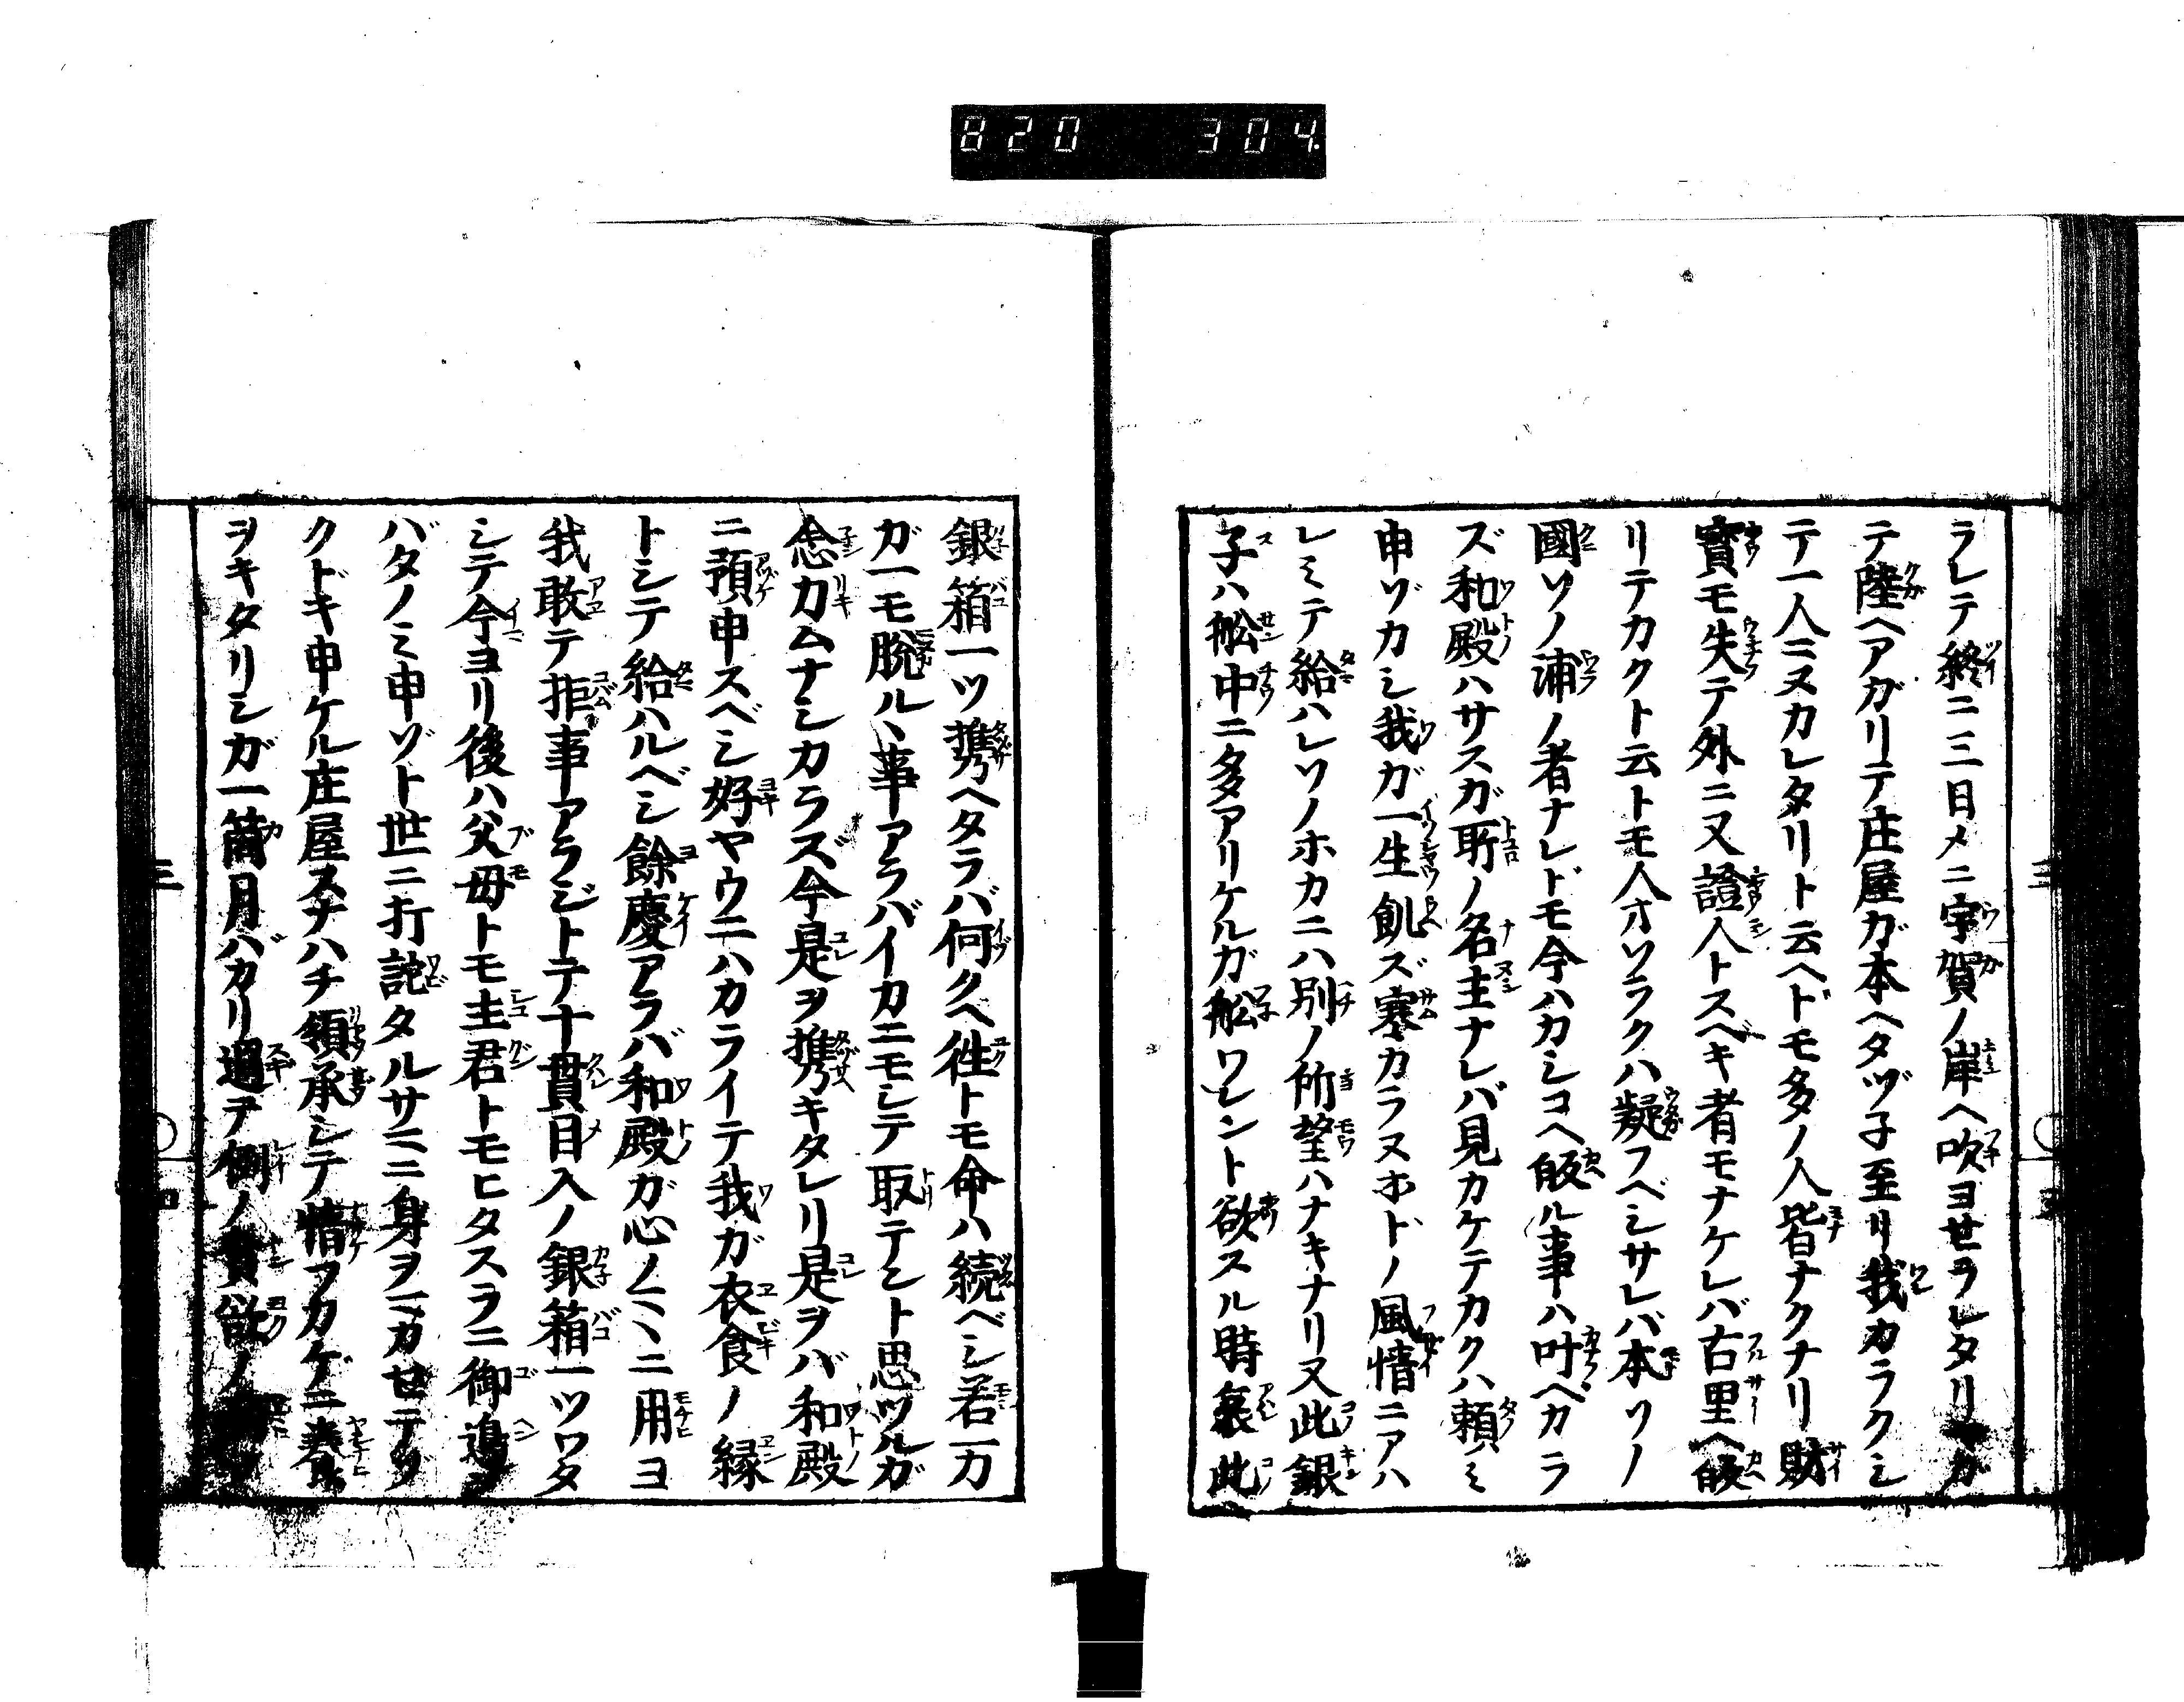 820 304.
ラレテ終ニ三日メニ宇賀ノ岸ヘ吹ヨセラレタリ
テ陸ヘアガリテ庄屋ガ本ヘタヅ子至リ我カラクシ
テ一人ミヌカレタリト云ヘドモ多ノ人皆ナクナリ財
寳モ失テ外ニ又證人トスベキ者モナケレバ古里ヘ皈
リテカクト云トモ人オソラクハ疑フベシサレバ本ソノ
國ソノ浦ノ者ナレドモ今ハカシコヘ皈ル事ハ叶ベカラ
ズ和殿ハサスガ所ノ名主ナレバ見カケテカクハ頼ミ
申ゾカシ我ガ一生飢ズ寒カラヌホドノ風情ニアハ
レミテ給ハレソノホカニハ別ノ所望ハナキナリ又此銀
子ハ舩中ニ多アリケルガ舩ワレント欲スル時哀此
銀箱一ツ携ヘタラバ何クヘ徃トモ命ハ続ベシ若万
ガ一モ脱ルヽ事アラバイカニモシテ取テント思ツルガ
念力ムナシカラズ今是ヲ携キタレリ是ヲバ和殿
ニ預申スベシ好ヤウニハカライテ我ガ衣食ノ縁
トシテ給ハルベシ餘慶アラバ和殿ガ心ノマヽニ用ヨ
我敢テ拒事アラジトテ十貫目入ノ銀箱一ツワタ
シテ今ヨリ後ハ父母トモ主君トモヒタスラニ御邉ヲ
バタノミ申ゾト世ニ打詫タルサマニ身ヲマカセテゾ
クドキ申ケル庄屋スナハチ領承シテ情フカゲニ養
ヲキタリシガ一箇月バカリ過テ例ノ貪欲ノ
三
三